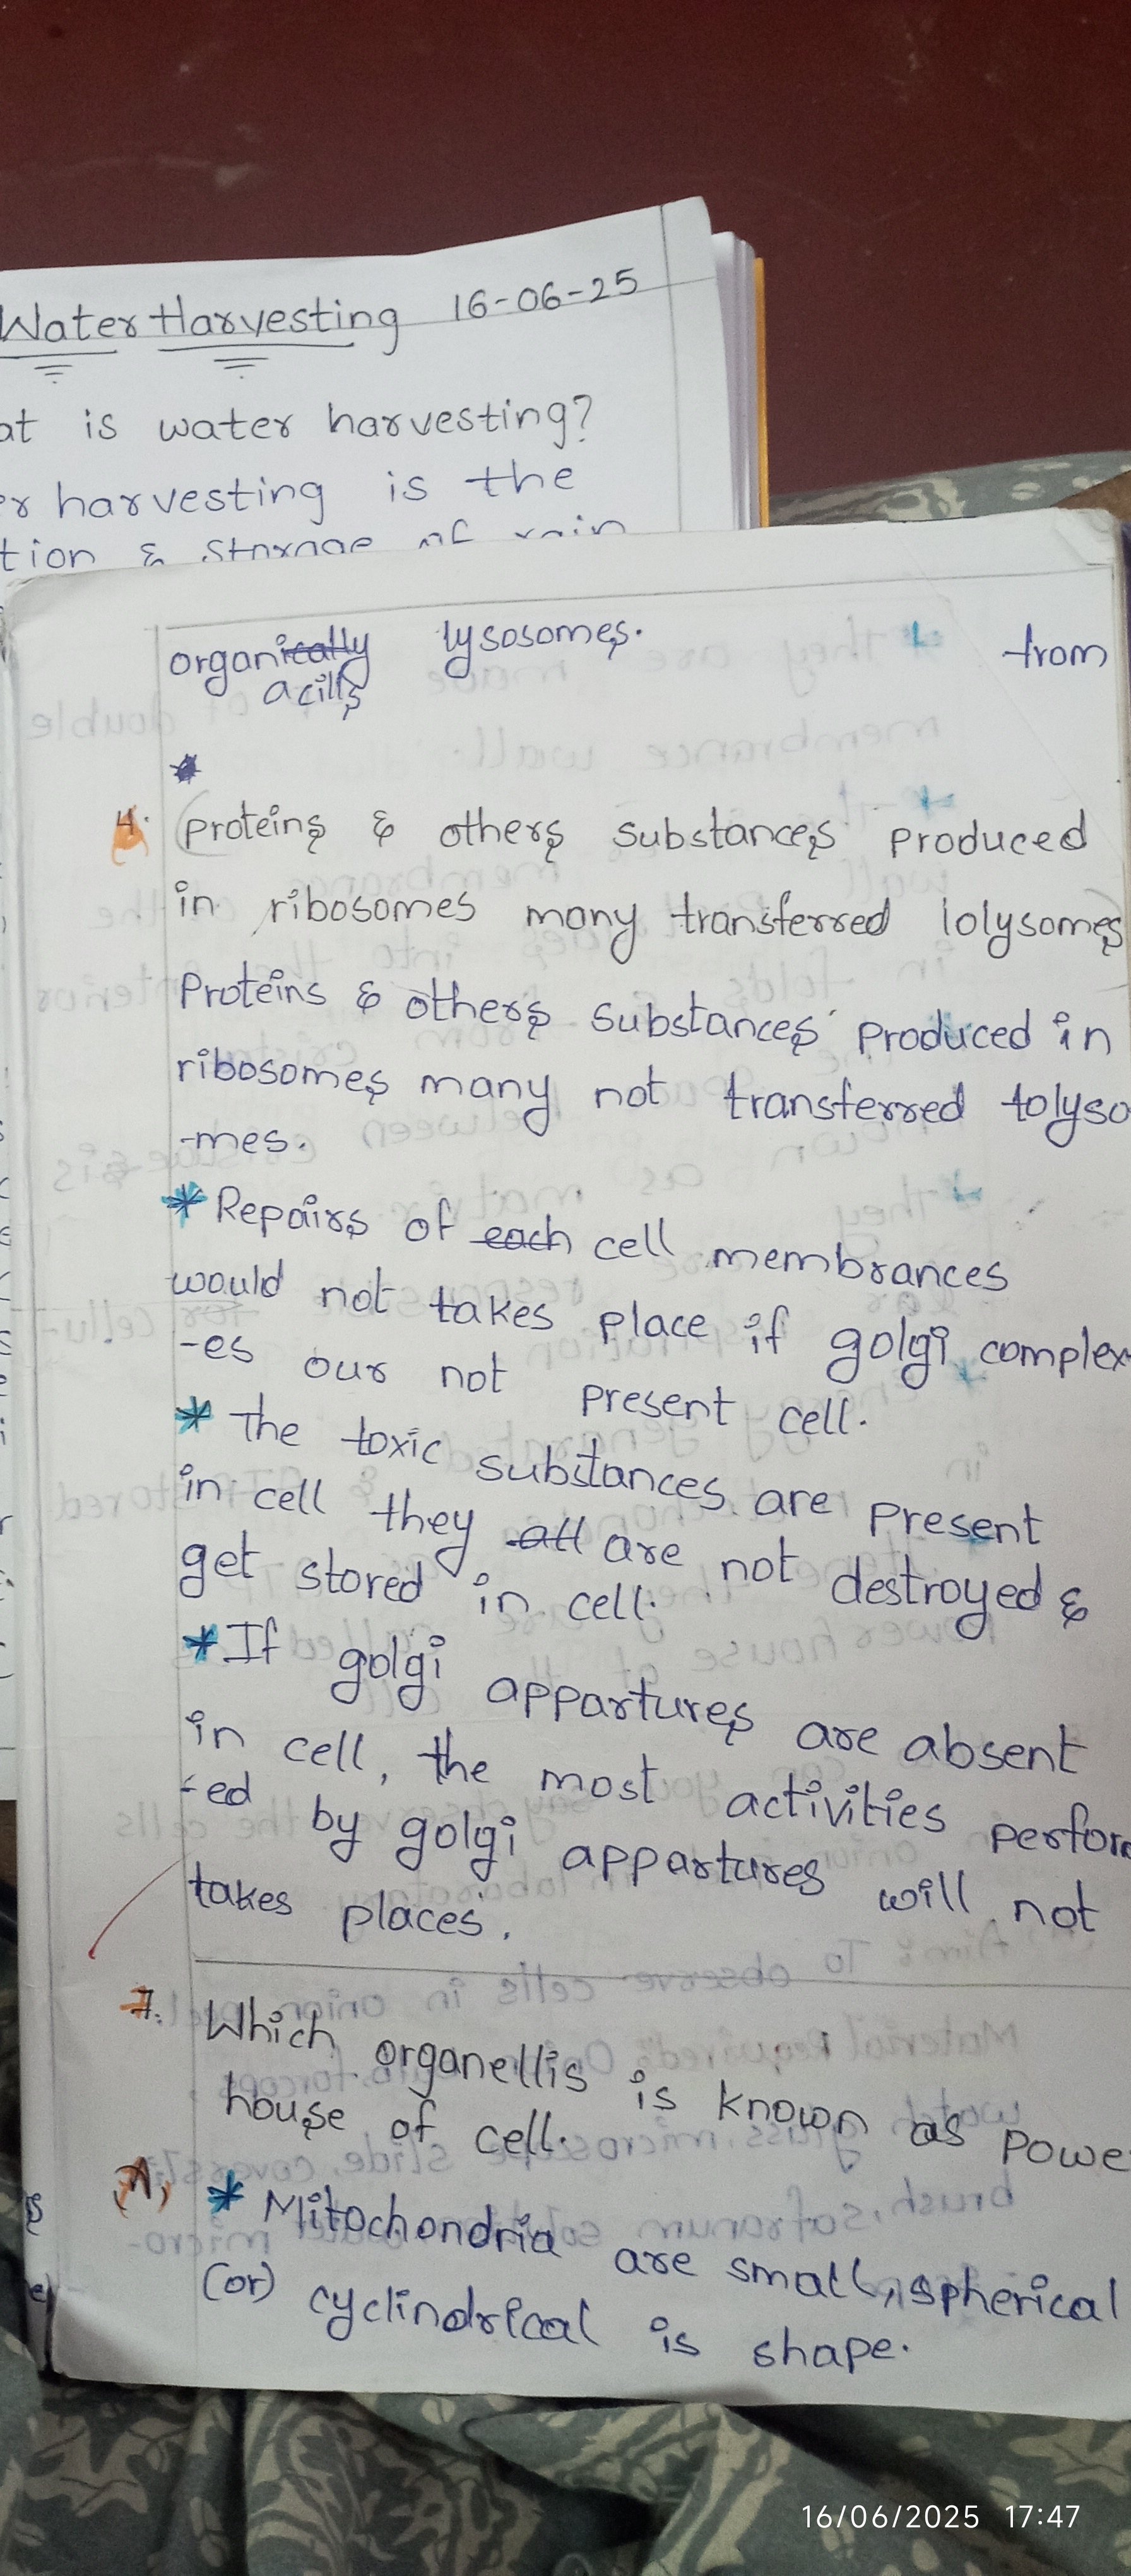 Water Harvesting 16-06-25
at is water harvesting?
er harvesting is the
tion & storage of rain
organically lysosomes. from
acills
*
4. proteins & others substances produced
in ribosomes many transferred lolysomes
Proteins & others substances produced in
ribosomes many not transferred tolyso
-mes.
* Repairs of each cell membrances
would not takes place if golgi complex
-es our not present cell.
* The toxic substances are present
in cell they all are not destroyed &
get stored in cell.
* If golgi appartures are absent
in cell, the most activities perform
-ed by golgi appartures will not
takes places.
7. Which organellis is known as powe
house of cell.
A) * Mitochondria are small, spherical
(or) cyclindrical is shape.
16/06/2025 17:47